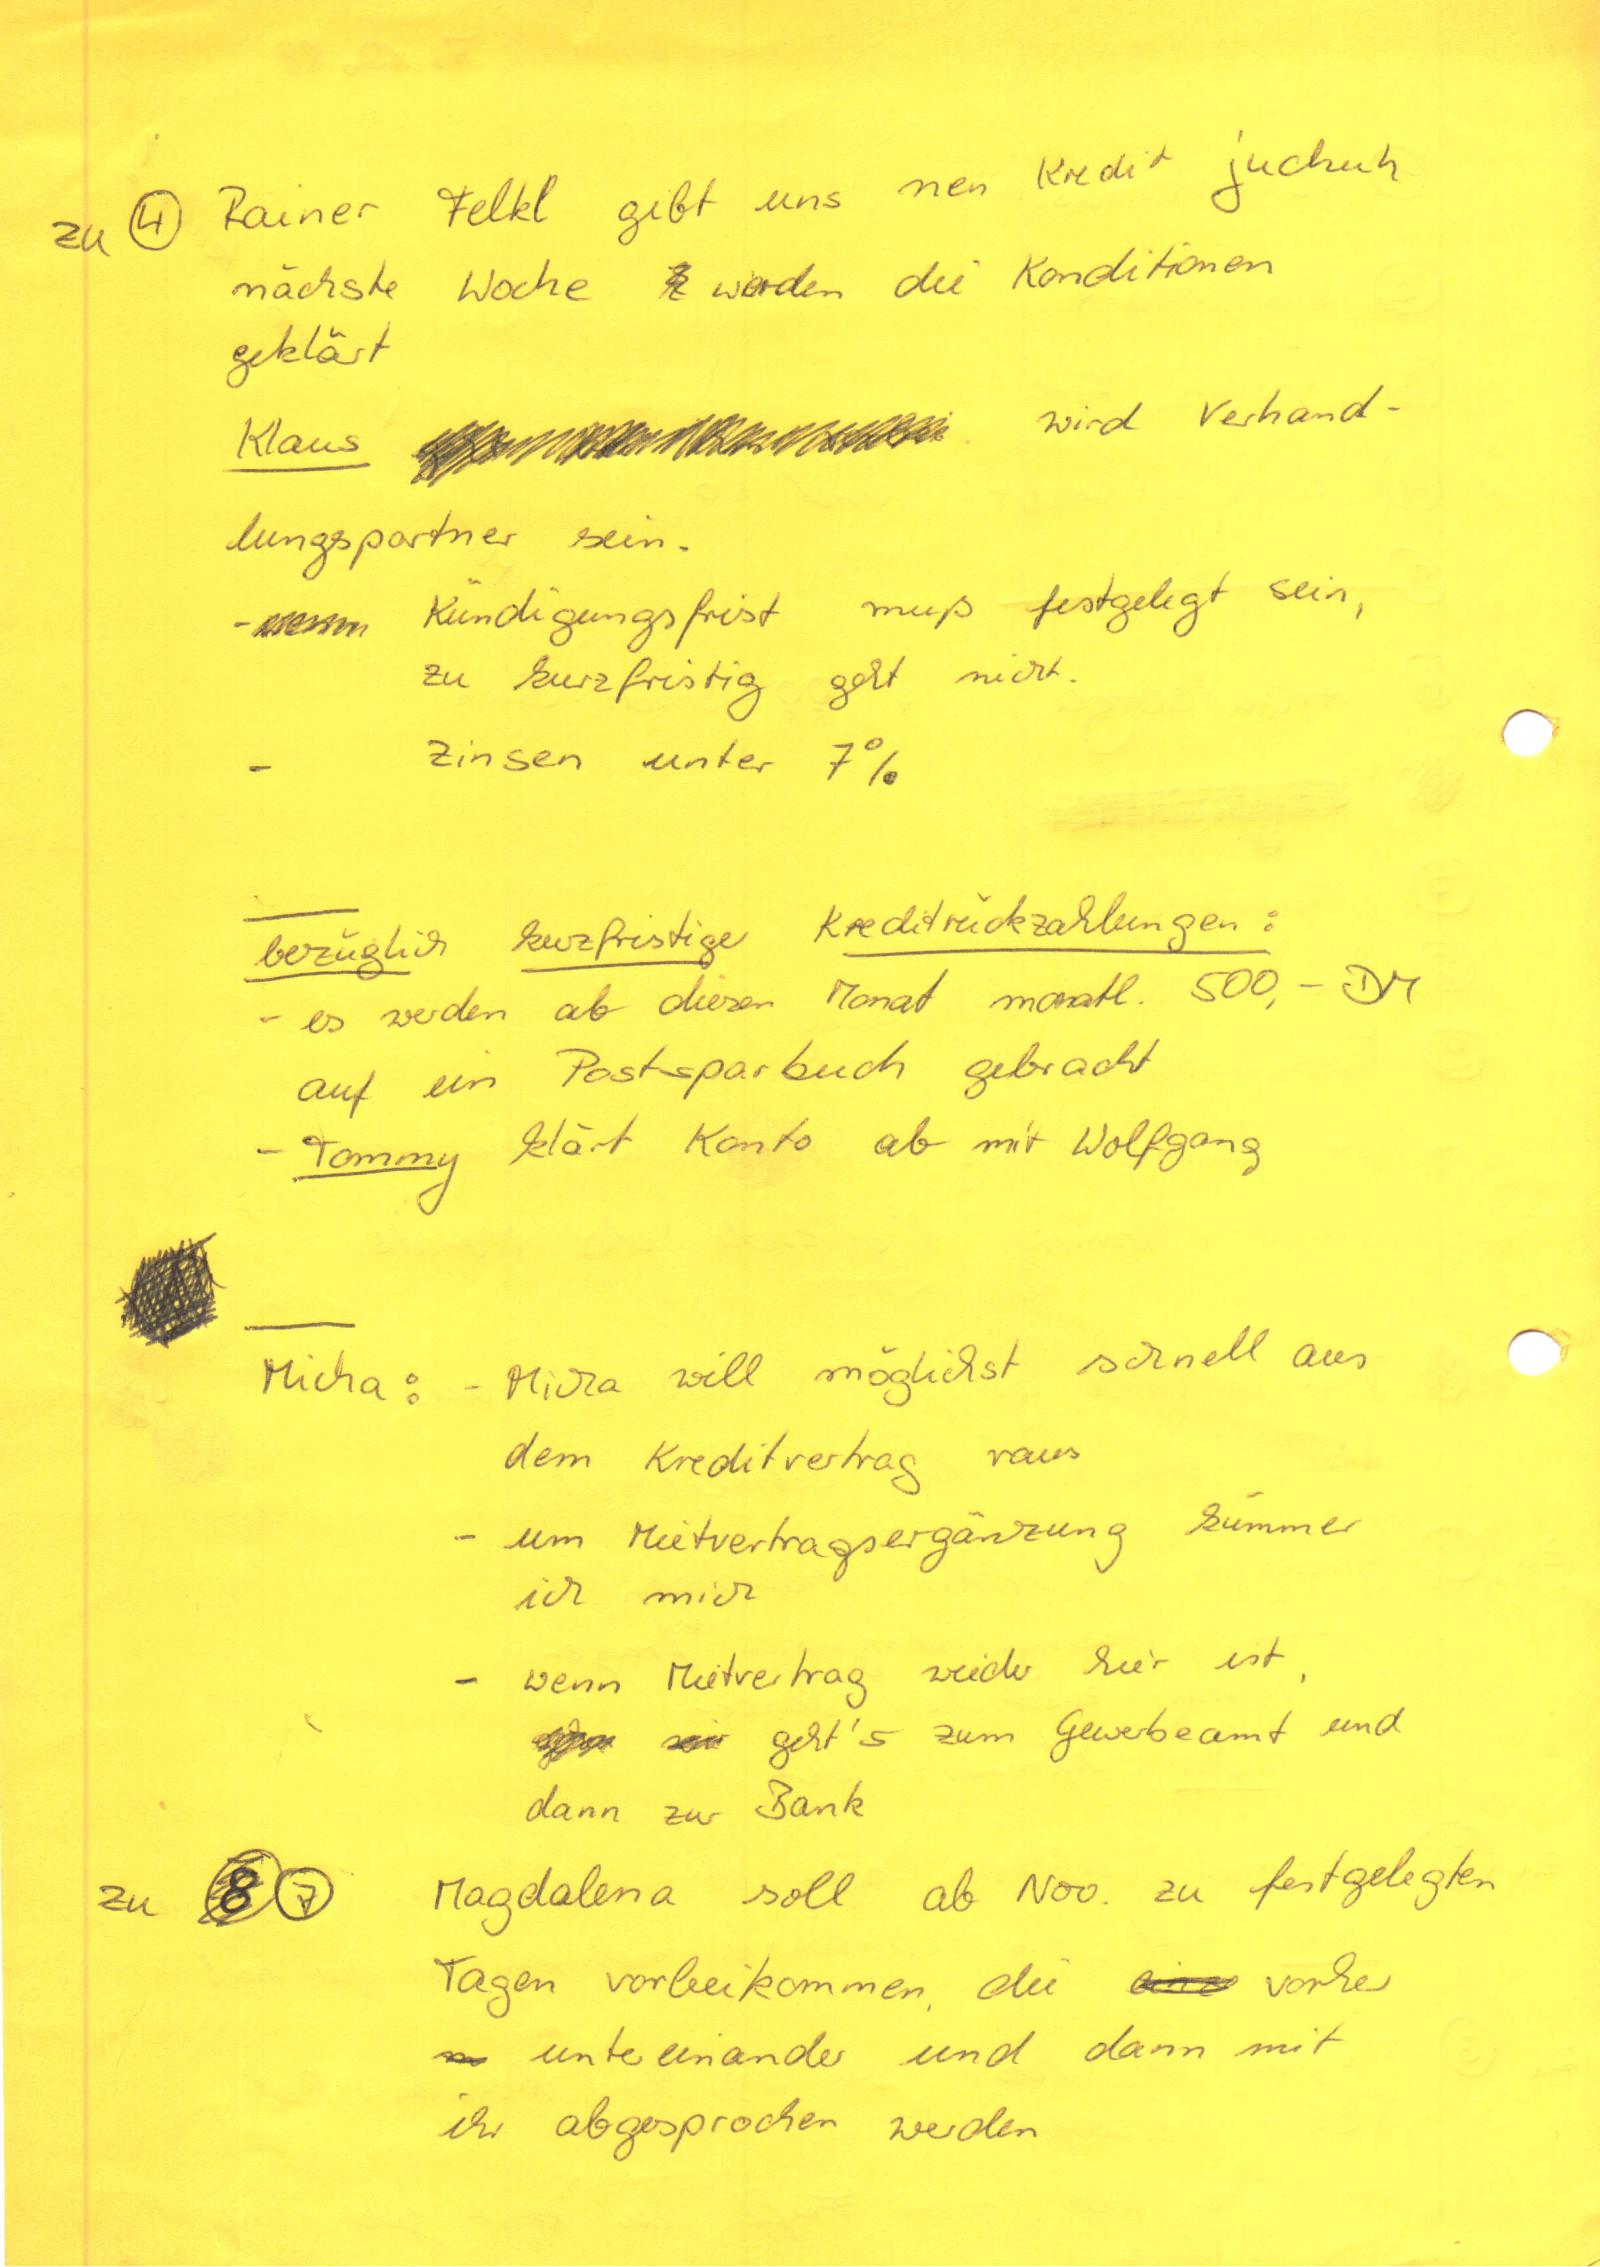 zu ④ Rainer Felkl gibt uns nen Kredit juchuh
nächste Woche werden die Konditionen
geklärt
Klaus wird Verhand-
lungspartner sein.
- Kündigungsfrist muß festgelegt sein,
zu kurzfristig geht nicht.
- Zinsen unter 7%
bezüglich kurzfristige Kreditrückzahlungen:
- es werden ab diesen Monat monatl. 500,- DM
auf ein Postsparbuch gebracht
- Tommy klärt Konto ab mit Wolfgang
Micha: - Micha will möglichst schnell aus
dem Kreditvertrag raus
- um Mietvertragsergänzung kümmer
ich mich
- wenn Mietvertrag wieder hier ist,
geht's zum Gewerbeamt und
dann zur Bank
zu 8 ⑦ Magdalena soll ab Nov. zu festgelegten
Tagen vorbeikommen, die vorher
untereinander und dann mit
ihr abgesprochen werden